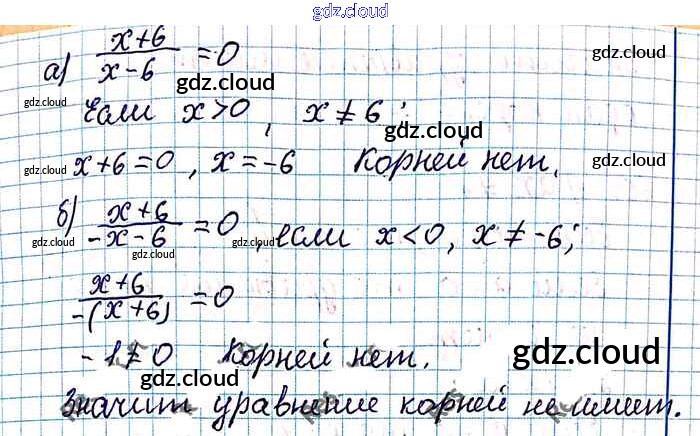 gdz.cloud
а) x+6/x-6 =0 gdz.cloud gdz.cloud
gdz.cloud Если x>0, x≠6; gdz.cloud
gdz.cloud x+6=0, x=-6 Корней нет. gdz.cloud
б) x+6/-x-6 =0, если x<0, x≠-6;
gdz.cloud gdz.cloud gdz.cloud
x+6/-(x+6) =0
-1≠0 Корней нет. gdz.cloud
gdz.cloud
Значит уравнение корней не имеет.